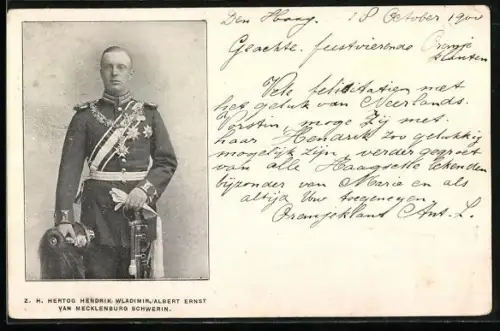 Den Haag. 18 October 1900
Geachte feestvierende Oranje
klanten
Vele felicitatien met
het geluk van Neerlands.
Vorstin, moge Zij met
haar Hendrik zoo gelukkig
mogelijk zijn, verder gegroet
van alle Haagsche bekenden
bijzonder van Marie en als
altijd Uw toegenegen
Oranjeklant Ant. L.
Z. H. HERTOG HENDRIK WLADIMIR ALBERT ERNST
VAN MECKLENBURG SCHWERIN.